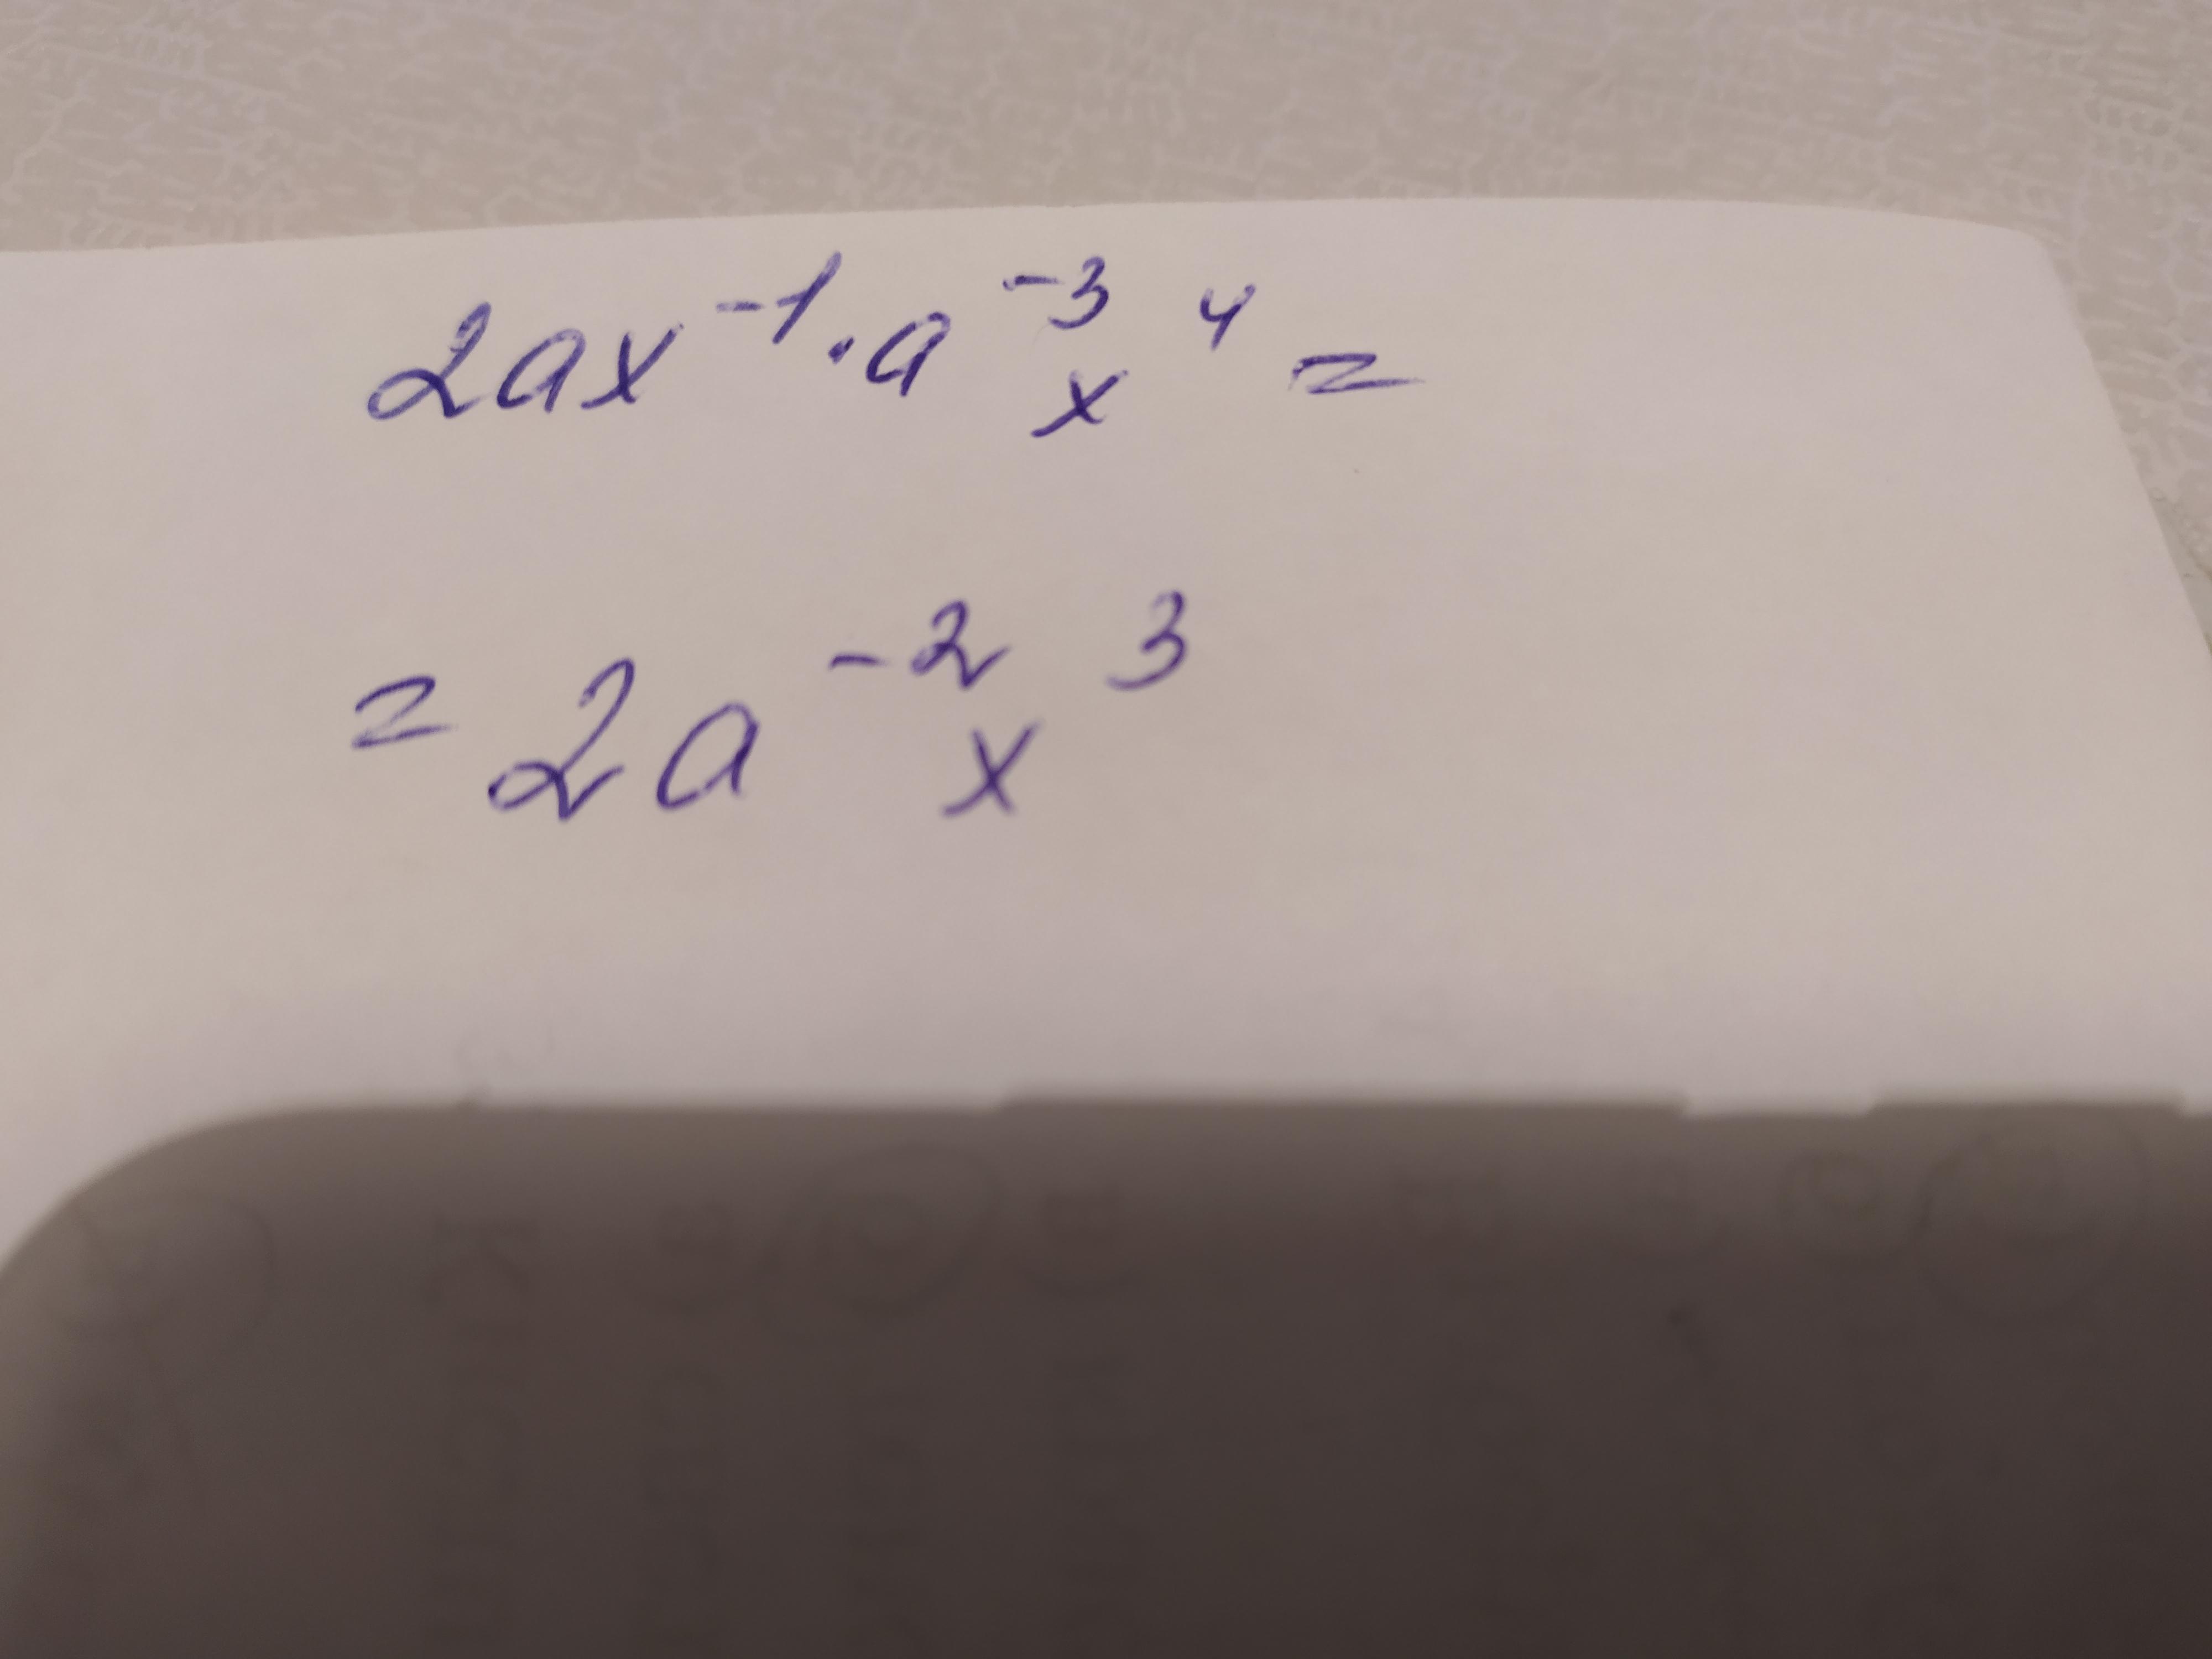 2ax⁻¹·a⁻³x⁴=
=2a⁻²x³